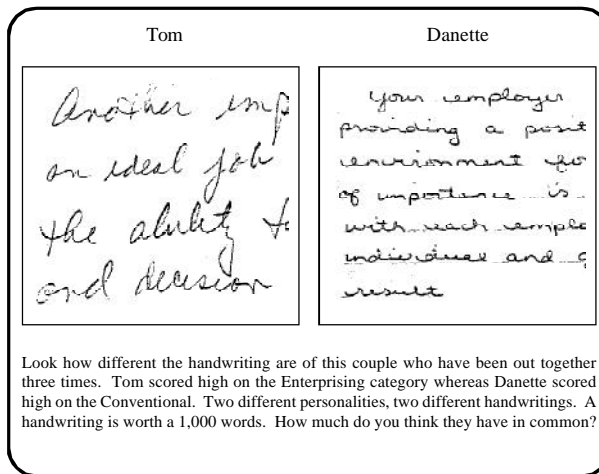 Tom
Another imp
an ideal job
the ability t
and decision
Danette
Your employer
providing a posit
environment fo
of importance is
with each emplo
individual and
result
Look how different the handwriting are of this couple who have been out together
three times. Tom scored high on the Enterprising category whereas Danette scored
high on the Conventional. Two different personalities, two different handwritings. A
handwriting is worth a 1,000 words. How much do you think they have in common?